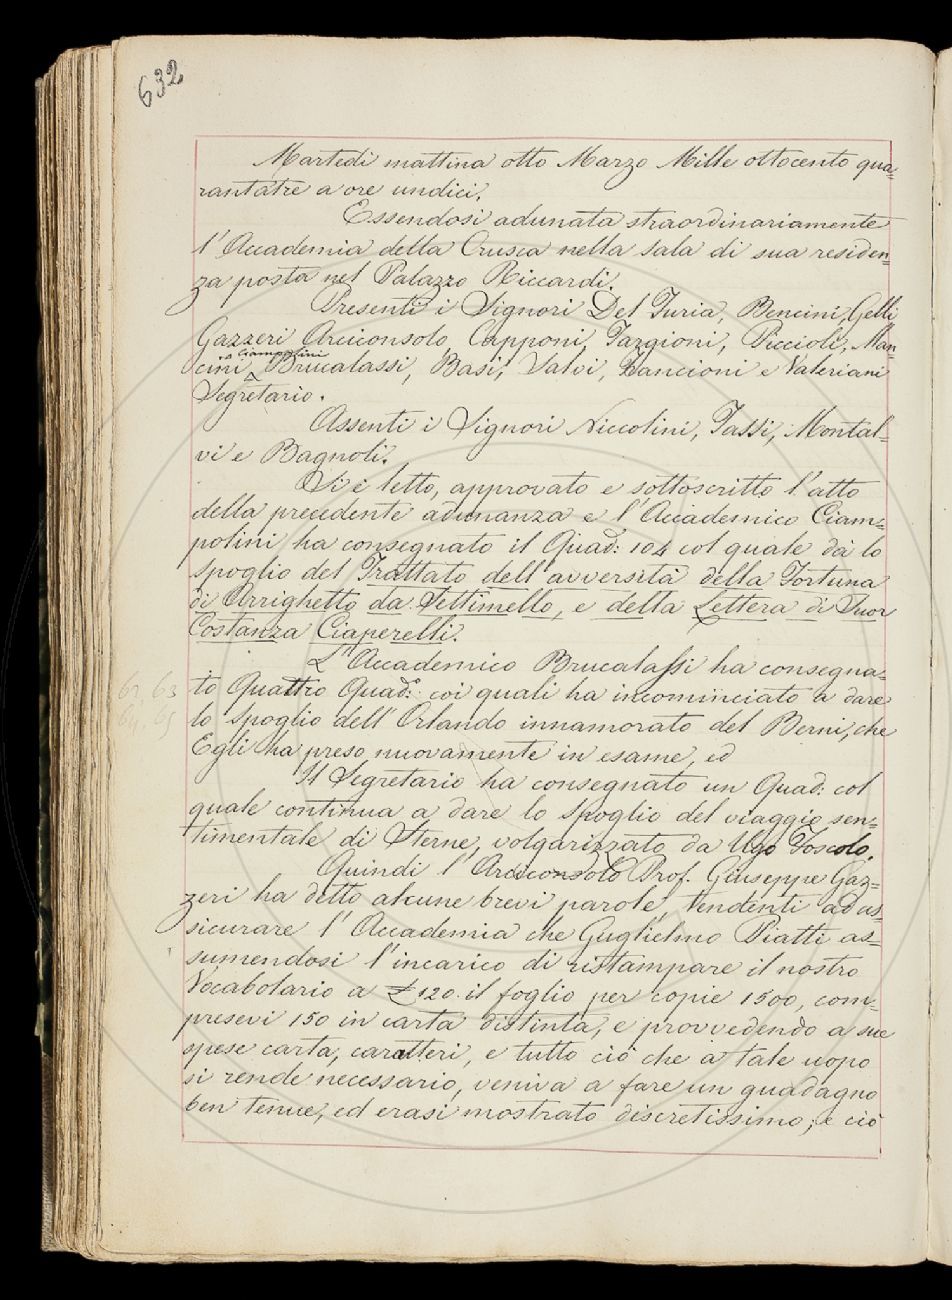 632
Martedi mattina otto Marzo Mille ottocento qua=
rantatre a ore undici.
Essendosi adunata straordinariamente
l'Accademia della Crusca nella sala di sua residen=
za posta nel Palazzo Riccardi.
Presenti i Signori Del Furia, Bencini, Gelli,
Gazzeri Arciconsolo, Capponi, Targioni, Piccioli, Man=
Ciampolini
cini, Brucalassi, Basi, Salvi, Zancioni e Valeriani
Segretario.
Assenti i Signori Niccolini, Tassi, Montal=
vi e Bagnoli.
Si è letto, approvato e sottoscritto l'atto
della precedente adunanza e l'Accademico Ciam=
polini ha consegnato il Quad: 104 col quale dà lo
spoglio del Trattato dell'avversità della Fortuna
di Arrighetto da Settimello, e della Lettera di Suor
Costanza Ciaperelli.
L'Accademico Brucalassi ha consegna=
62. 63
to Quattro Quad: coi quali ha incominciato a dare
64. 65
lo Spoglio dell'Orlando innamorato del Berni, che
Egli ha preso nuovamente in esame, ed
Il Segretario ha consegnato un Quad: col
quale continua a dare lo spoglio del viaggio sen=
timentale di Sterne, volgarizzato da Ugo Foscolo.
Quindi l'Arciconsolo Prof. Giuseppe Gaz=
zeri ha detto alcune brevi parole, tendenti ad as=
sicurare l'Accademia che Guglielmo Piatti as=
sumendosi l'incarico di ristampare il nostro
Vocabolario a £ 120. il foglio per copie 1500, com=
presevi 150 in carta distinta, e provvedendo a sue
spese carta, caratteri, e tutto ciò che a tale uopo
si rende necessario, veniva a fare un guadagno
ben tenue, ed erasi mostrato discretissimo; e ciò